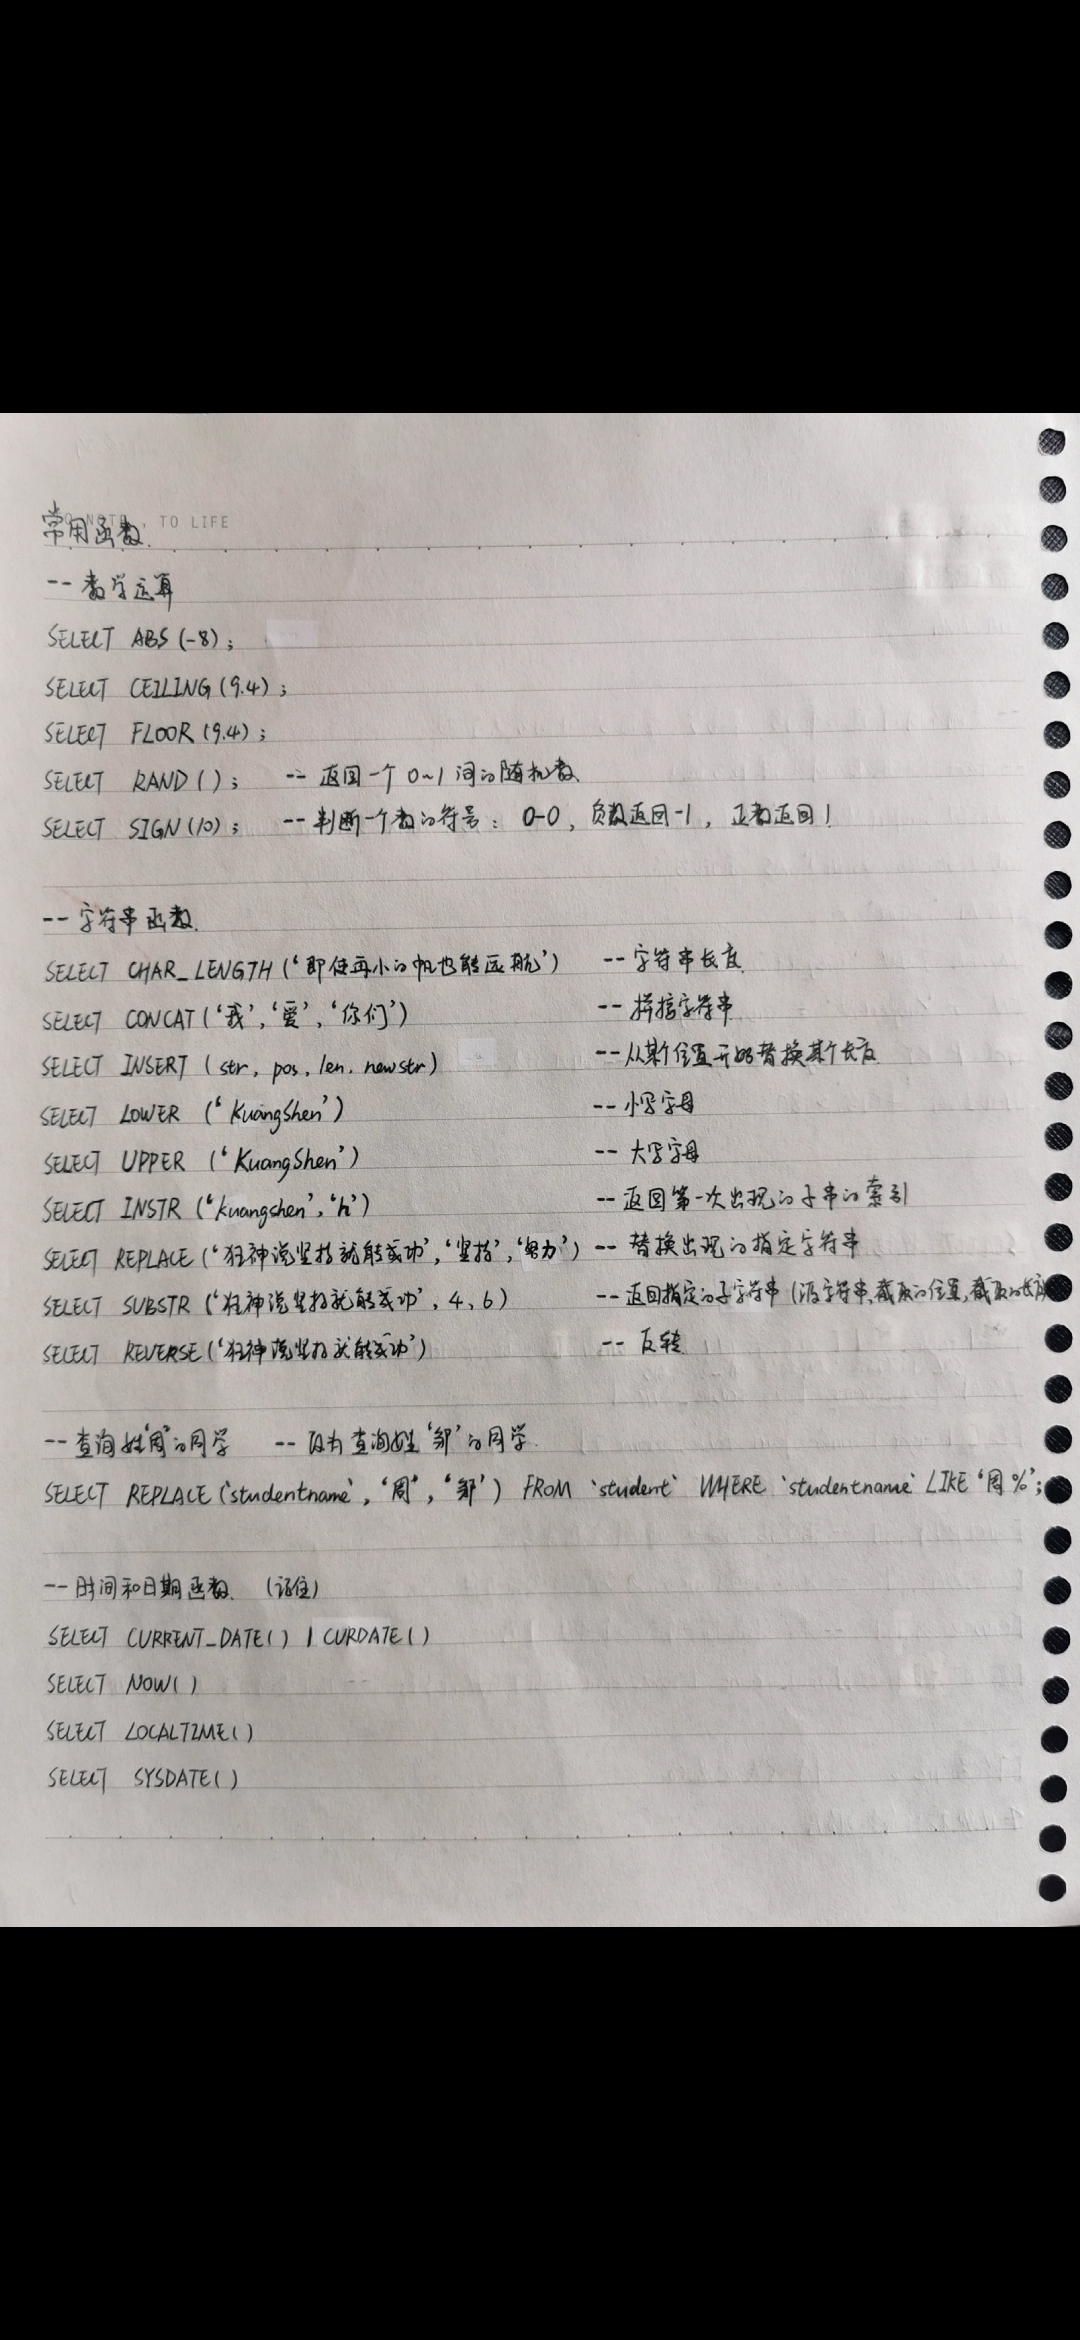 TO LIFE
常用函数
-- 数学运算
SELECT ABS(-8);
SELECT CEILING(9.4);
SELECT FLOOR(9.4);
SELECT RAND(); -- 返回一个0~1间的随机数
SELECT SIGN(10); -- 判断一个数的符号: 0-0, 负数返回-1, 正数返回1
-- 字符串函数
SELECT CHAR_LENGTH('即使再小的帆也能远航') -- 字符串长度
SELECT CONCAT('我','爱','你们') -- 拼接字符串
SELECT INSERT (str, pos, len, newstr) -- 从某个位置开始替换某个长度
SELECT LOWER ('KuangShen') -- 小写字母
SELECT UPPER ('KuangShen') -- 大写字母
SELECT INSTR ('kuangshen','h') -- 返回第一次出现的子串的索引
SELECT REPLACE('狂神说坚持就能成功','坚持','努力') -- 替换出现的指定字符串
SELECT SUBSTR ('狂神说坚持就能成功', 4, 6) -- 返回指定的子字符串 (源字符串,截取的位置,截取的长度
SELECT REVERSE('狂神说坚持就能成功') -- 反转
-- 查询姓'周'的同学 -- 改为查询姓'邹'的同学
SELECT REPLACE(`studentname`, '周', '邹') FROM `student` WHERE `studentname` LIKE '周%';
-- 时间和日期函数 (记住)
SELECT CURRENT_DATE() | CURDATE()
SELECT NOW()
SELECT LOCALTIME()
SELECT SYSDATE()